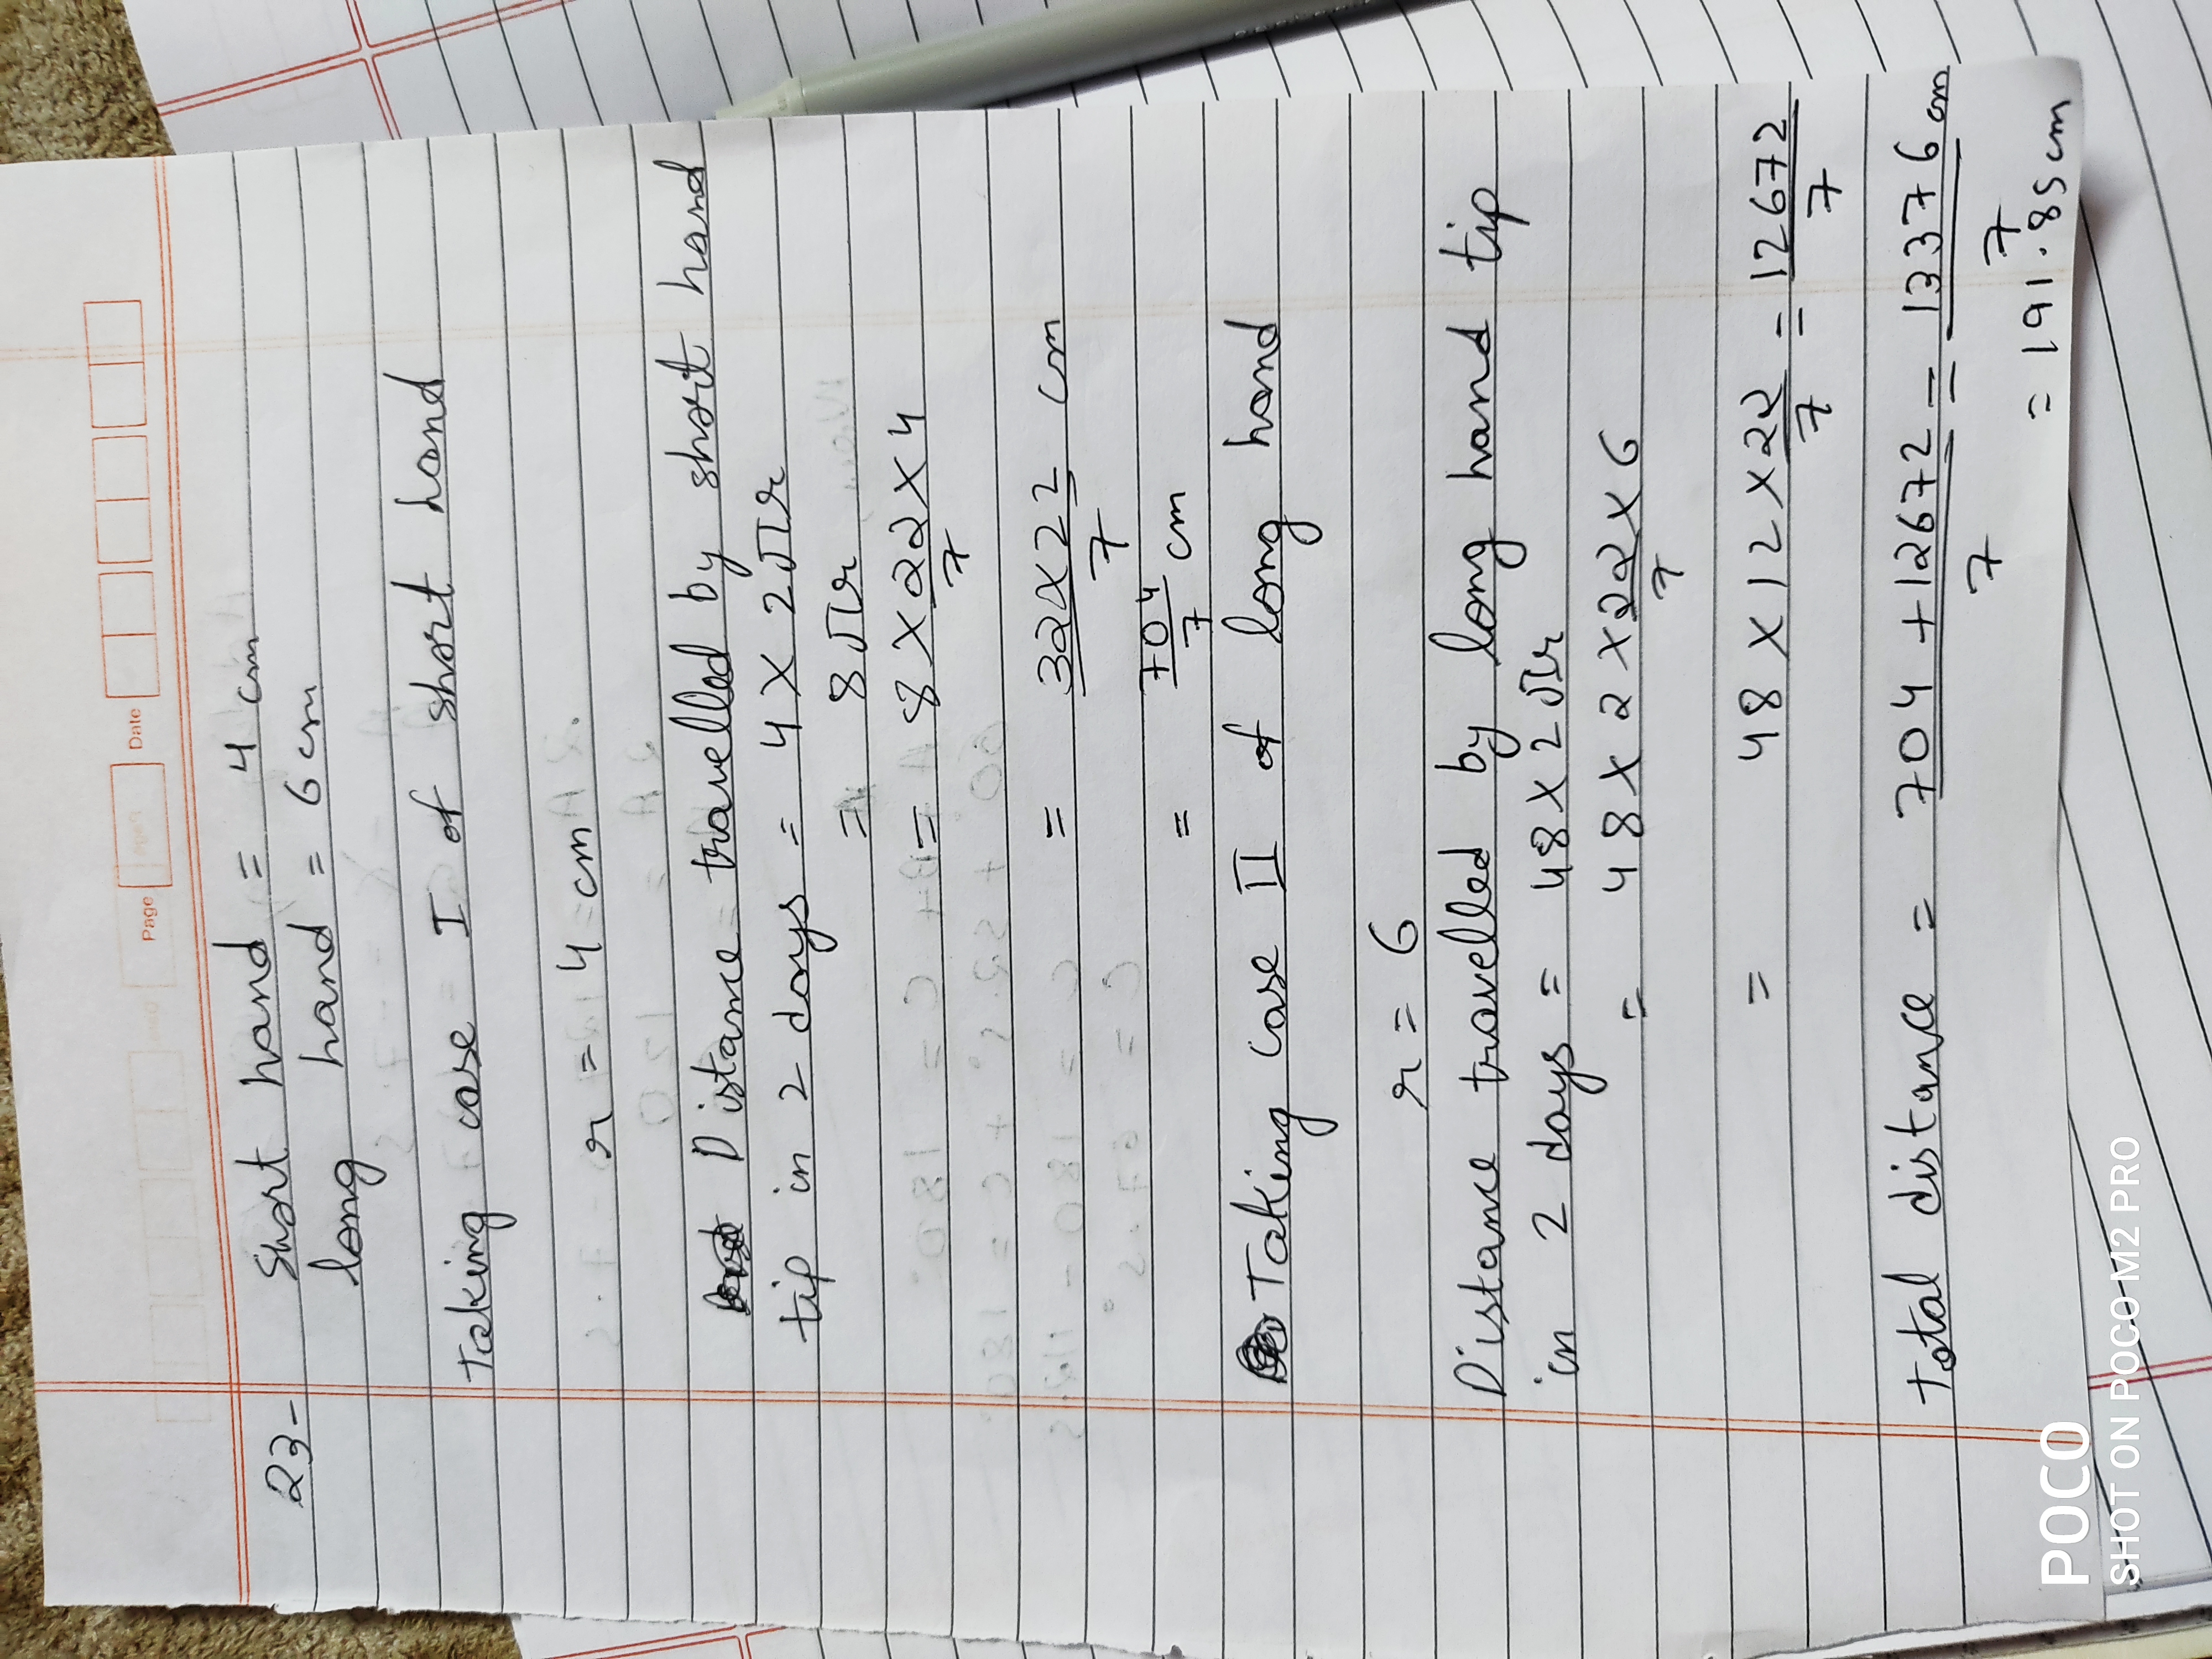 Page Date
23- Short hand = 4 cm
long hand = 6 cm
Taking case I of short hand
r = 4 cm
Distance travelled by short hand
tip in 2 days = 4 X 2πr
= 8πr
= 8 X 22/7 X 4
= 32X22/7 cm
= 704/7 cm
Taking case II of long hand
r = 6
Distance travelled by long hand tip
in 2 days = 48 X 2πr
= 48 X 2 X 22/7 X 6
= 48 X 12 X 22/7 = 12672/7
Total distance = 704 + 12672/7 = 13376/7 cm
= 191.85 cm
POCO
SHOT ON POCO M2 PRO